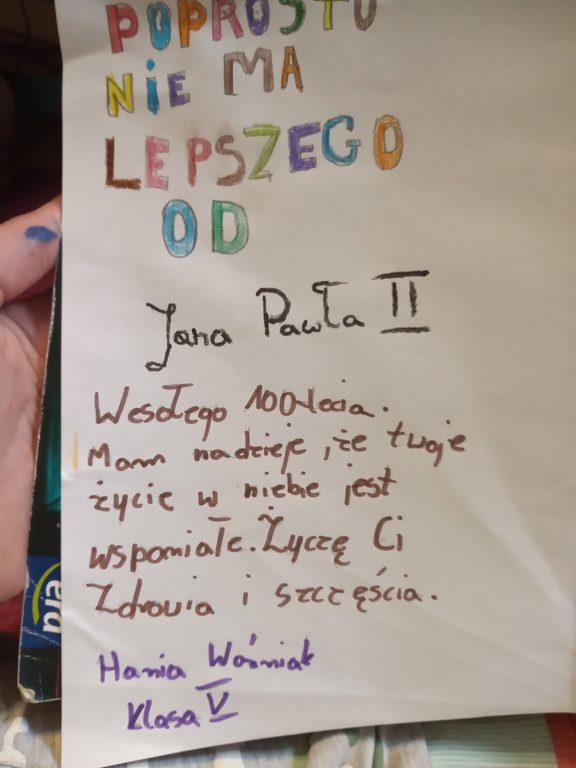 POPROSTU
NIE MA
LEPSZEGO
OD
Jana Pawła II
Wesołego 100-lecia.
Mam nadzieje, że twoje
życie w niebie jest
wsponiałe. Życzę Ci
Zdrowia i szczęścia.
Hania Woźniak
Klasa V
era